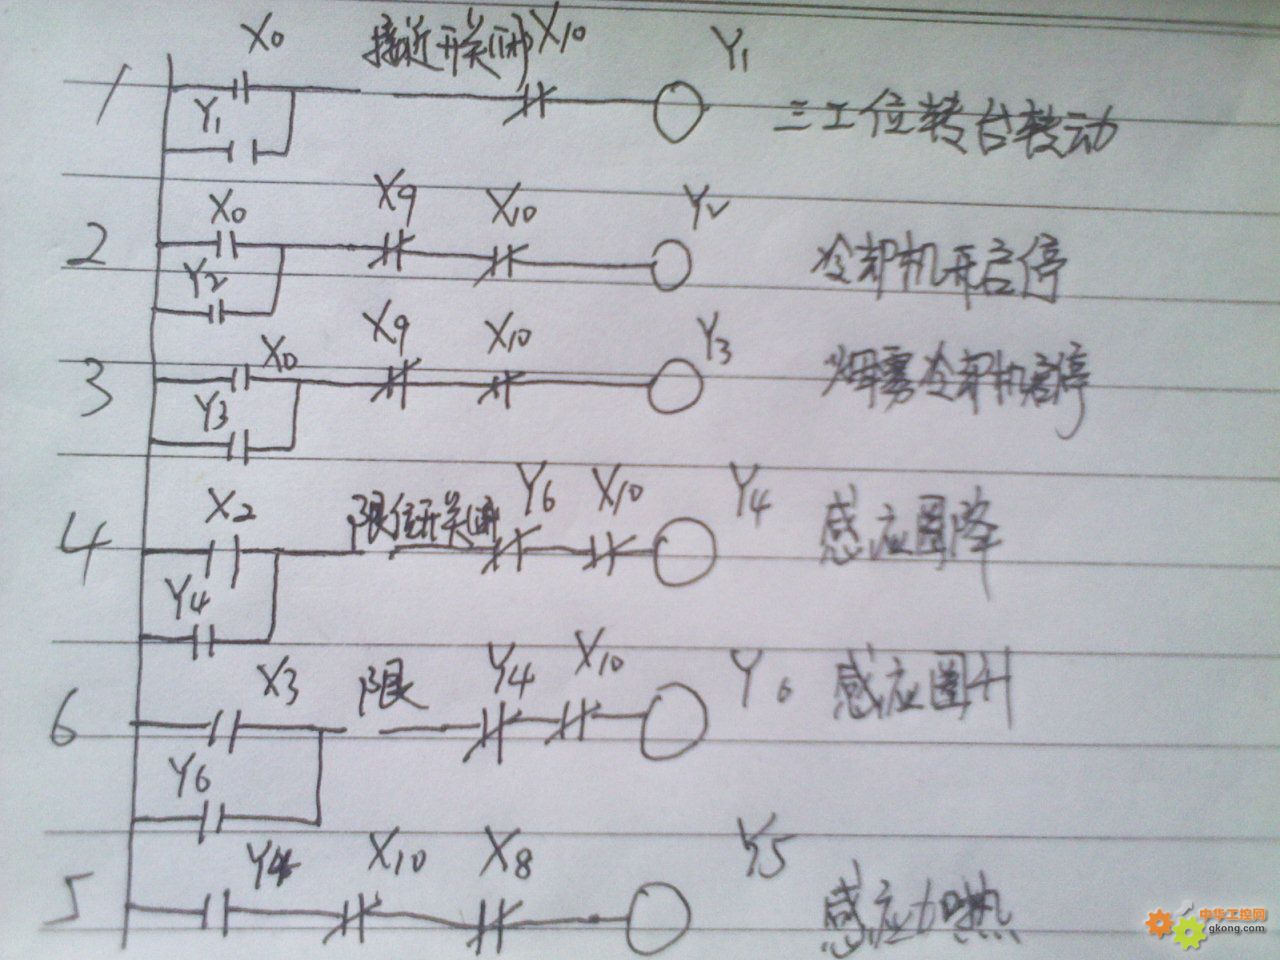 X0 接近开关(1开) X10 Y1
1 三工位转台转动
Y1
X0 X9 X10 Y2
2 冷却机开启停
Y2
X0 X9 X10 Y3
3 烟雾冷却机启停
Y3
X2 限位开关 Y6 X10 Y4
4 感应圈降
Y4
X3 限 Y4 X10 Y6
6 感应圈升
Y6
Y4 X10 X8 Y5
5 感应加热
中华工控网
gkong.com